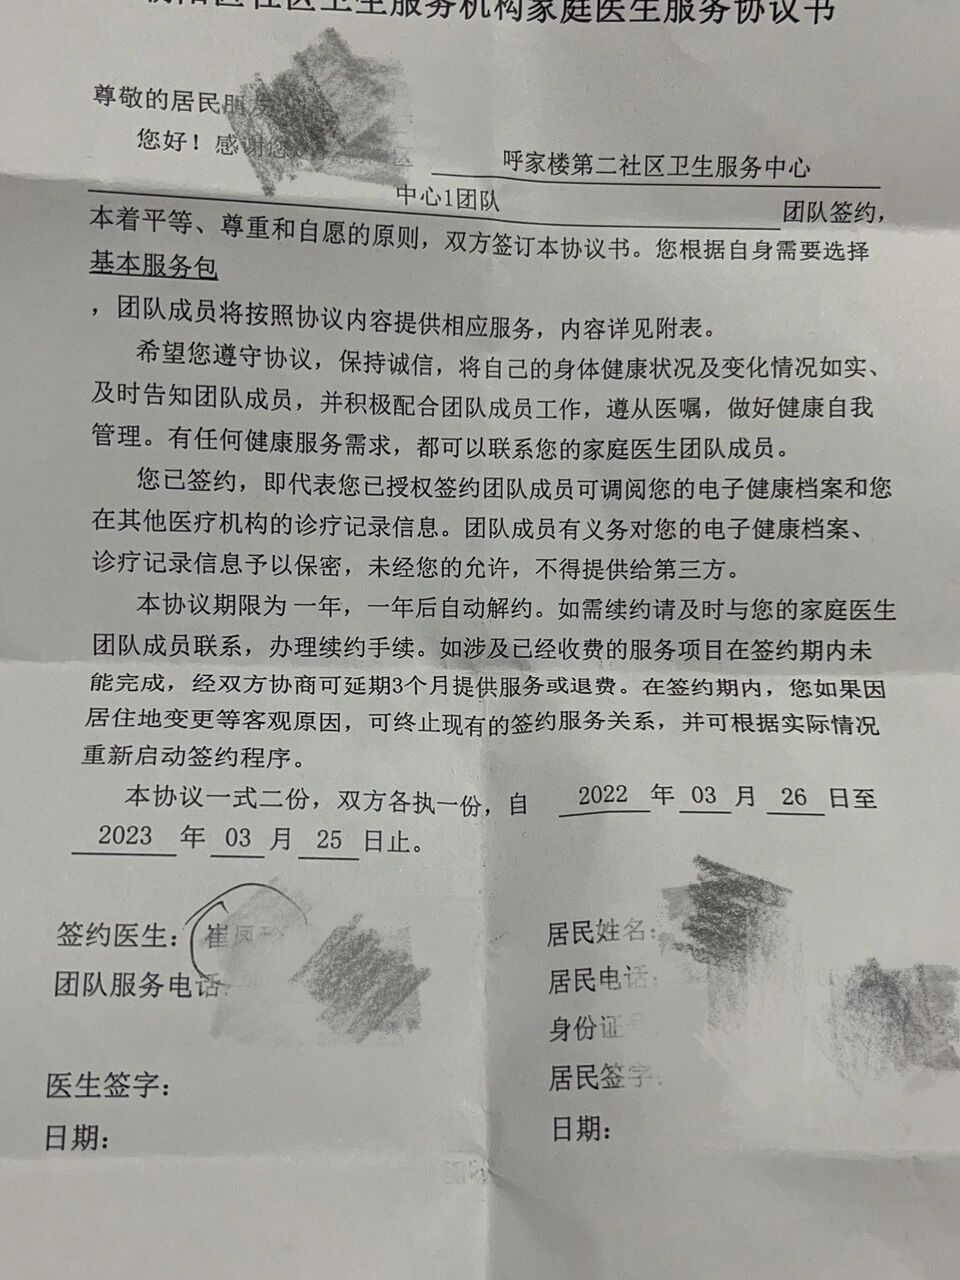 社区卫生服务机构家庭医生服务协议书
尊敬的居民朋友
您好！感谢您 区 呼家楼第二社区卫生服务中心
中心1团队 团队签约，
本着平等、尊重和自愿的原则，双方签订本协议书。您根据自身需要选择
基本服务包
，团队成员将按照协议内容提供相应服务，内容详见附表。
希望您遵守协议，保持诚信，将自己的身体健康状况及变化情况如实、
及时告知团队成员，并积极配合团队成员工作，遵从医嘱，做好健康自我
管理。有任何健康服务需求，都可以联系您的家庭医生团队成员。
您已签约，即代表您已授权签约团队成员可调阅您的电子健康档案和您
在其他医疗机构的诊疗记录信息。团队成员有义务对您的电子健康档案、
诊疗记录信息予以保密，未经您的允许，不得提供给第三方。
本协议期限为一年，一年后自动解约。如需续约请及时与您的家庭医生
团队成员联系，办理续约手续。如涉及已经收费的服务项目在签约期内未
能完成，经双方协商可延期3个月提供服务或退费。在签约期内，您如果因
居住地变更等客观原因，可终止现有的签约服务关系，并可根据实际情况
重新启动签约程序。
本协议一式二份，双方各执一份，自 2022 年 03 月 26 日至
2023 年 03 月 25 日止。
签约医生：崔凤
团队服务电话：
医生签字：
日期：
居民姓名：
居民电话：
身份证号
居民签字：
日期：